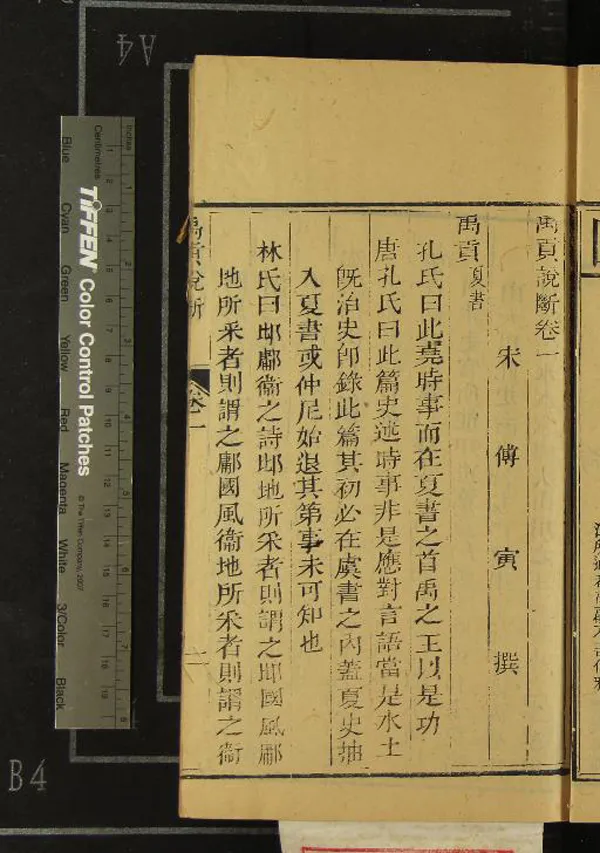 禹貢說斷卷一
宋傅寅撰
禹貢夏書
孔氏曰此堯時事而在夏書之首禹之王以是功
唐孔氏曰此篇史述時事非是應對言語當是水土
旣治史卽錄此篇其初必在虞書之內蓋夏史抽
入夏書或仲尼始退其第事未可知也
林氏曰邶鄘衞之詩邶地所采者則謂之邶國風鄘
地所采者則謂之鄘國風衞地所采者則謂之衞
禹貢說斷
卷一
一
A4
B4
Inches
Centimetres
TIFFEN Color Control Patches
© The Tiffen Company, 2007
Blue
Cyan
Green
Yellow
Red
Magenta
White
3/Color
Black